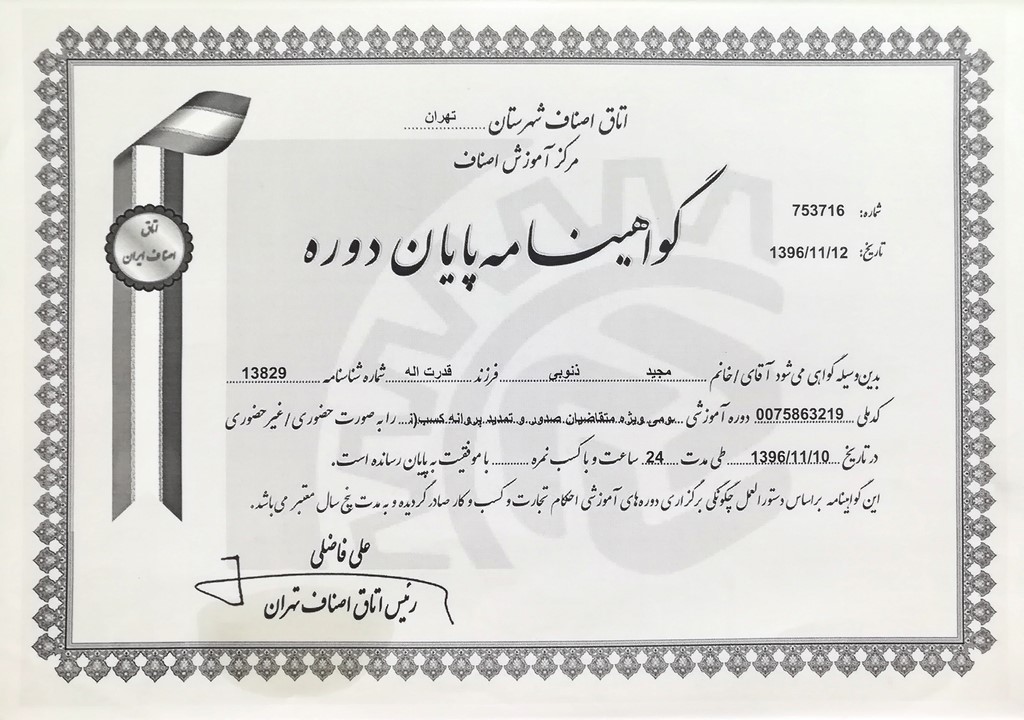 اتاق اصناف شهرستان تهران
مرکز آموزش اصناف
گواهینامه پایان دوره
شماره: 753716
تاریخ: 1396/11/12
اتاق
اصناف ایران
بدین وسیله گواهی می شود آقای / خانم مجید ذنوبی فرزند قدرت اله شماره شناسنامه 13829
کد ملی 0075863219 دوره آموزشی بومی ویژه متقاضیان صدور و تمدید پروانه کسب را به صورت حضوری / غیر حضوری
در تاریخ 1396/11/10 طی مدت 24 ساعت و با کسب نمره با موفقیت به پایان رسانده است.
این گواهینامه براساس دستورالعمل چگونگی برگزاری دوره های آموزشی احکام تجارت و کسب و کار صادر گردیده و به مدت پنج سال معتبر می باشد.
علی فاضلی
رئیس اتاق اصناف تهران